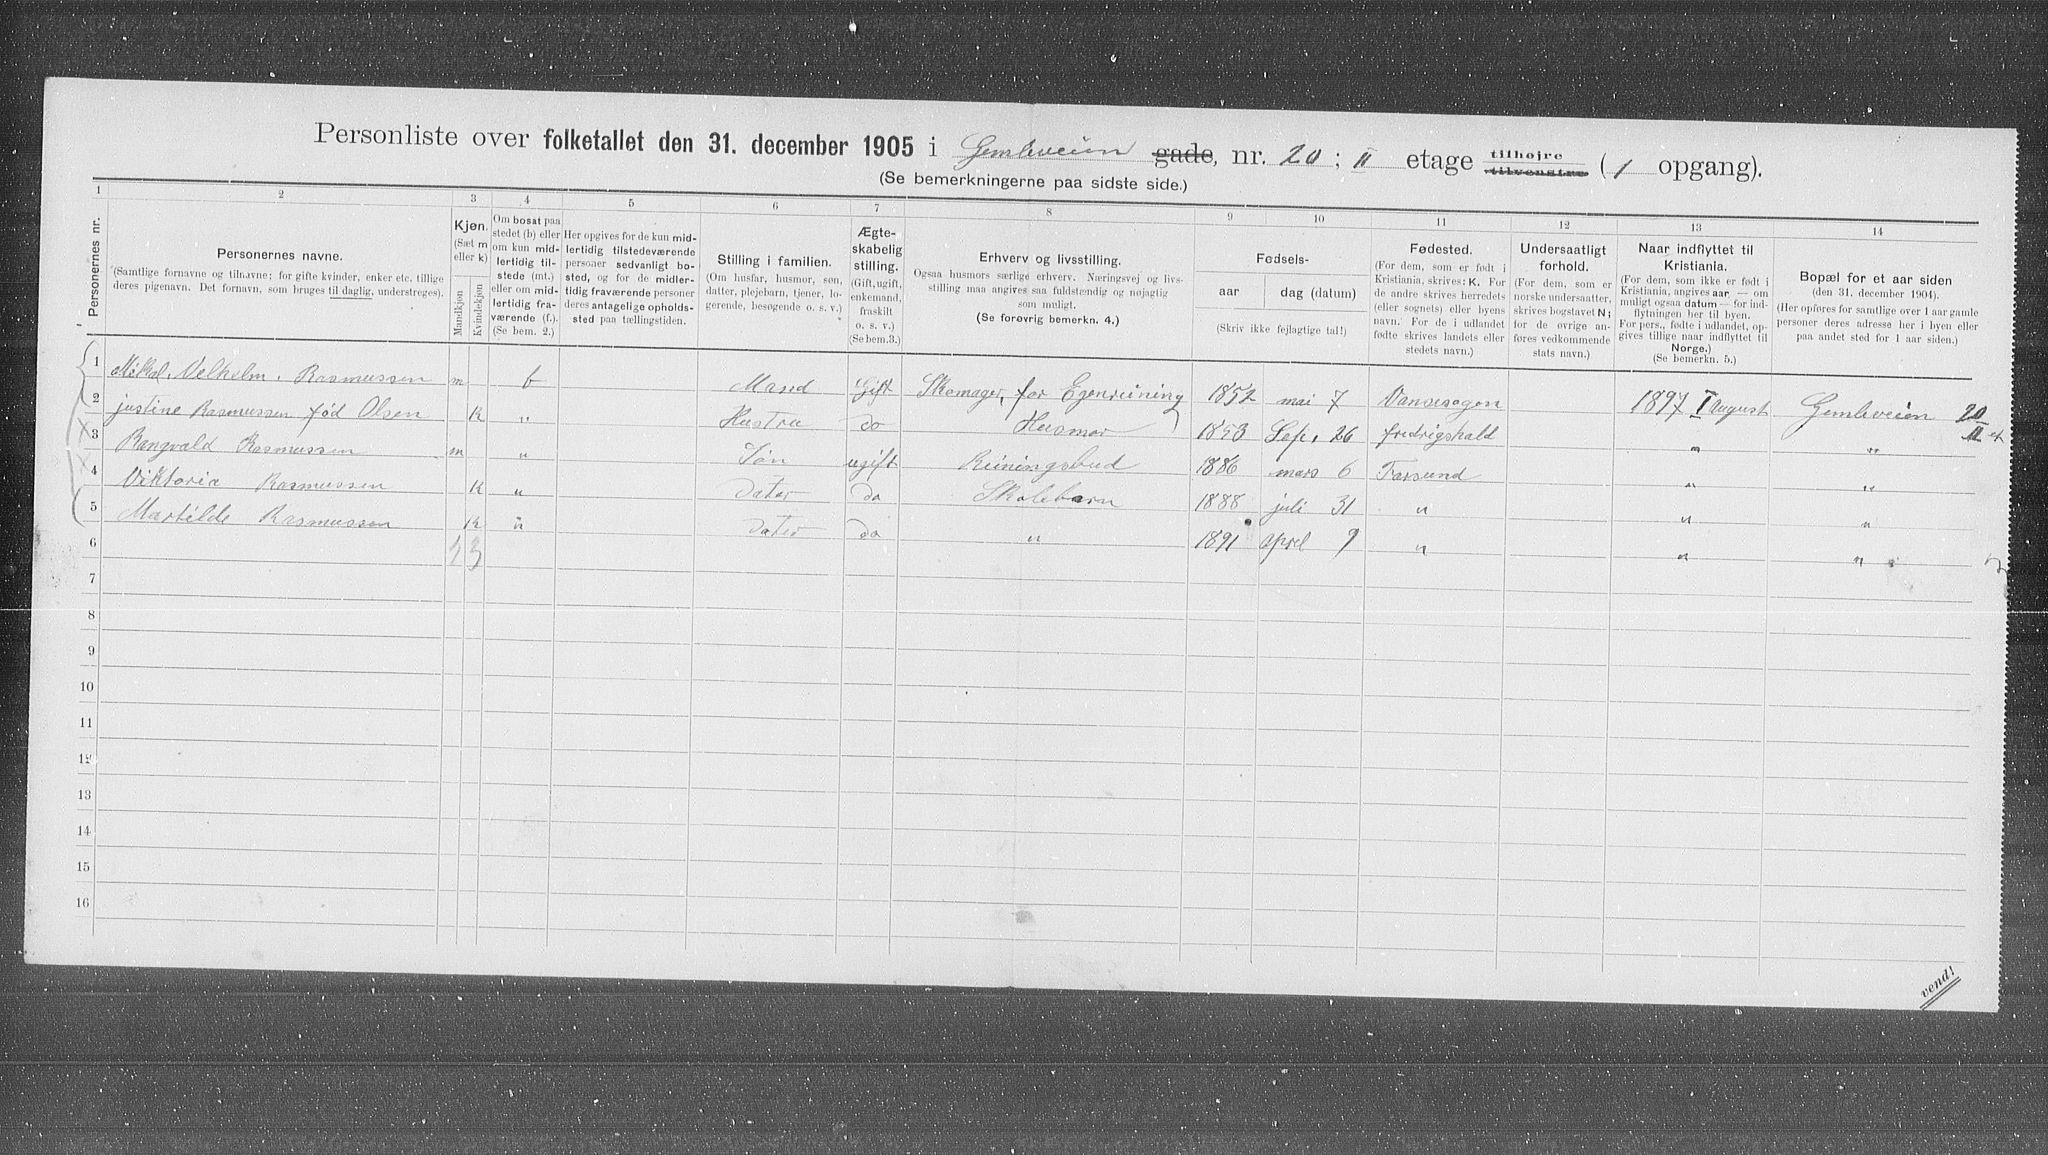 Personliste over folketallet den 31. december 1905 i Gimleveien gade, nr. 20; II etage tilhøjre tilvenstre (1 opgang).
(Se bemerkningerne paa sidste side.)
1 2 3 4 5 6 7 8 9 10 11 12 13 14
Personernes nr.
Personernes navne.
(Samtlige fornavne og tilnavne; for gifte kvinder, enker etc. tillige
deres pigenavn. Det fornavn, som bruges til daglig, understreges).
Kjøn.
(Sæt m
eller k)
Mandkjøn
Kvindekjøn
Om bosat paa
stedet (b) eller
om kun mid-
lertidig til-
stede (mt.)
eller om mid-
lertidig fra-
værende (f.).
(Se bem. 2.)
Her opgives for de kun mid-
lertidig tilstedeværende
personer sedvanligt bo-
sted, og for de midler-
tidig fraværende personer
deres antagelige opholds-
sted paa tællingstiden.
Stilling i familien.
(Om husfar, husmor, søn,
datter, plejebarn, tjener, lo-
gerende, besøgende o. s. v.)
Ægte-
skabelig
stilling.
(Gift, ugift,
enkemand,
fraskilt
o. s. v.)
(Se bem. 3.)
Erhverv og livsstilling.
Ogsaa husmors særlige erhverv. Næringsvej og livs-
stilling maa angives saa fuldstændig og nøjagtig
som muligt.
(Se forøvrig bemerkn. 4.)
Fødsels-
aar
dag (datum)
(Skriv ikke fejlagtige tal!)
Fødested.
(For dem, som er født i
Kristiania, skrives: K. For
de andre skrives herredets
(eller sognets) eller byens
navn. For de i udlandet
fødte skrives landets eller
stedets navn.)
Undersaatligt
forhold.
(For dem, som er
norske undersaatter,
skrives bogstavet N;
for de øvrige an-
føres vedkommende
stats navn.)
Naar indflyttet til
Kristiania.
(For dem, som ikke er født i
Kristiania, angives aar — om
muligt ogsaa datum — for ind-
flytningen her til byen.
For pers., fødte i udlandet, op-
gives tillige naar indflyttet til
Norge.)
(Se bemerkn. 5.)
Bopæl for et aar siden
(den 31. december 1904).
(Her opføres for samtlige over 1 aar gamle
personer deres adresse her i byen eller
paa andet sted for 1 aar siden.)
1 Mikal. Velhelm. Rasmussen m b Mand Gift Skomager, for Egenreining 1852 mai 7 Vansesogen 1897 I August Gimleveien 20 II et
2 justine Rasmussen fød Olsen K " Hustru do Husmor 1853 Sep. 26 fredrigshald " "
3 Rangvald Rasmussen m " Søn ugift Reiningsbud 1886 mars 6 Farsund " "
4 Viktoria Rasmussen K " Dater do Skolebarn 1888 juli 31 " " "
5 Martilde Rasmussen K " Dater do " 1891 aprel 9 " " "
6
7
8
9
10
11
12
13
14
15
16
vend!